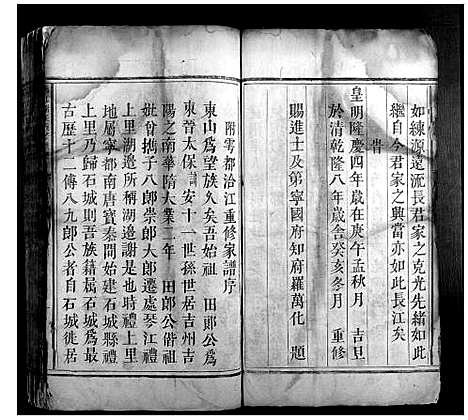 如練源遠流長君家之克光先緒如此
繼自今君家之興當亦如此長江矣
旹
皇明隆慶四年歲在庚午孟秋月 吉旦
於清乾隆八年歲舍癸亥冬月 重修
賜進士及第寧國府知府羅萬化 題
附雩都洽江重修家譜序
東山爲望族久矣吾始祖 田郎公爲
東晉太保 安十一世孫世居吉州吉
陽之南華隋大業二年 田郎公偕祖
妣曾攜子八郎崇郎大郎遷處琴江禮
上里湖邊所稱湖邊謝是也時禮上里
地屬寧都南唐寶泰間始建石城縣禮
上里乃歸石城則吾族籍屬石城爲最
古歷十二傳八九郎公者自石城徙居